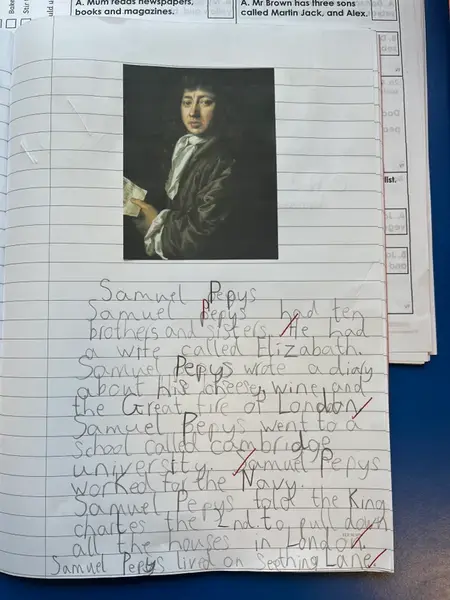 Bake
Stir
uld u
A. Mum reads newspapers,
books and magazines.
A. Mr Brown has three sons
called Martin Jack, and Alex.
list.
Samuel Pepys
Samuel Pepys had ten
brothers and sisters. He had
a wife called Elizabath.
Samuel Pepys wrote a diary
about his cheese, wine, and
the Great fire of London
Samuel Pepys went to a
school called cambridge
university. Samuel Pepys
worked for the Navy.
Samuel Pepys told the King
charles the 2nd. to pull down
all the houses in London.
Samuel Pepys lived on Seething Lane.